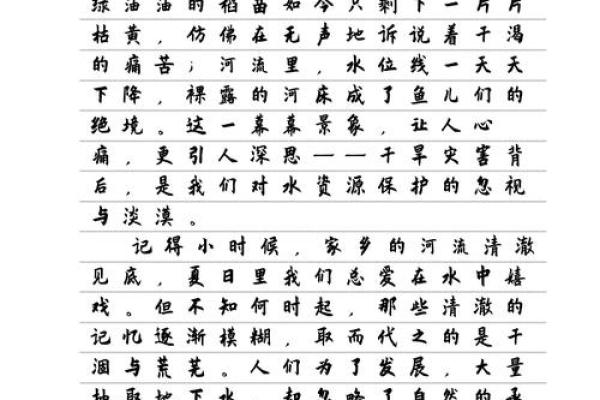 绿油油的稻苗如今只剩下一片片
枯黄，仿佛在无声地诉说着干渴
的痛苦；河流里，水位线一天天
下降，裸露的河床成了鱼儿们的
绝境。这一幕幕景象，让人心
痛，更引人深思——干旱灾害背
后，是我们对水资源保护的忽视
与淡漠。
记得小时候，家乡的河流清澈
见底，夏日里我们总爱在水中嬉
戏。但不知何时起，那些清澈的
记忆逐渐模糊，取而代之的是干
涸与荒芜。人们为了发展，大量
抽取地下水，却忽略了自然的承